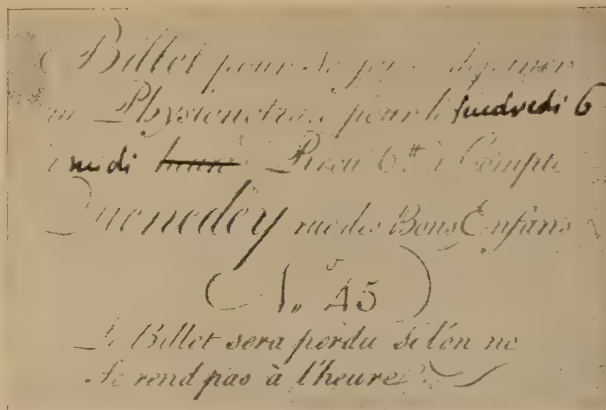 Billet pour se
Physionotrace pour le vendredi 6
midi heure Reçu 6 ₶ à Compte
Quenedey rue des Bons Enfans
(N.º 45)
Le Billet sera perdu si l'on ne
se rend pas à l'heure